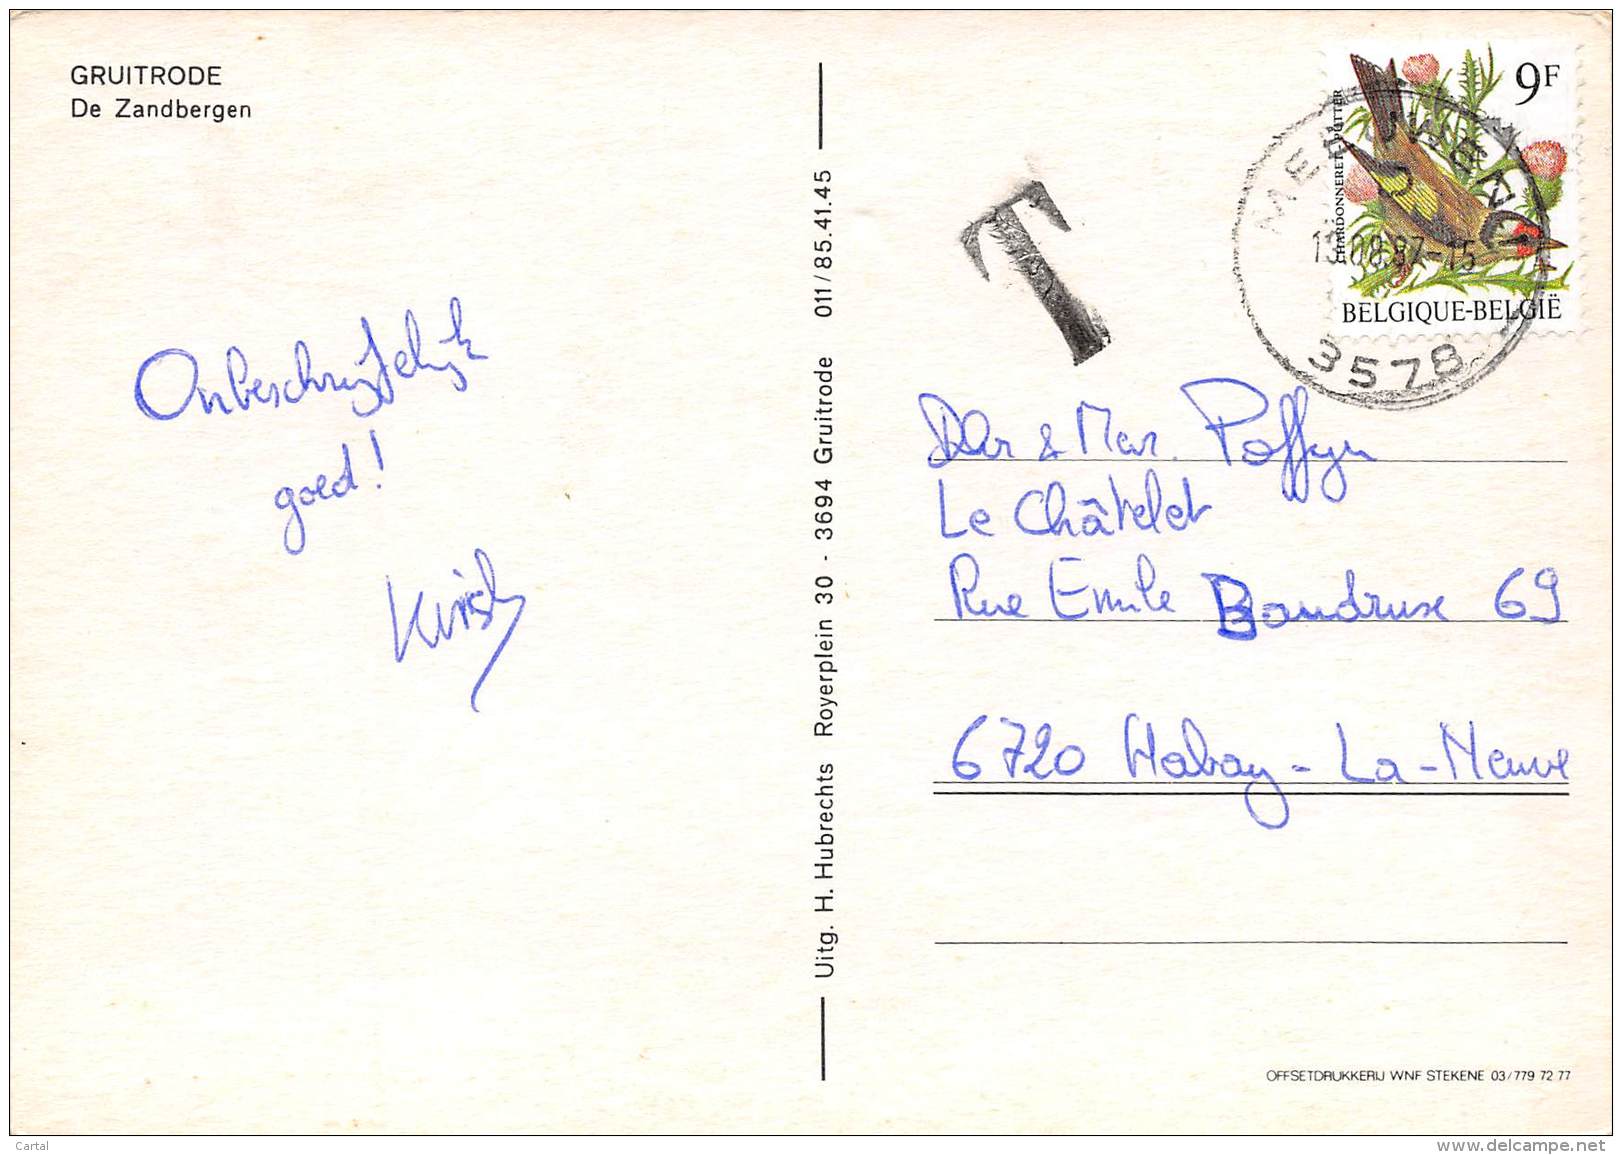 GRUITRODE
De Zandbergen
Onbeschrijfelijk
goed!
Uitg. H. Hubrechts Royerplein 30 - 3694 Gruitrode 011/85.41.45
T
9F
CHARDONNERET PUTTER
BELGIQUE-BELGIË
MEEUWEN
08.87-15
3578
& Mevr.
Le Châtelet
Rue Emile Baudrux 69
6720 Habay-La-Neuve
OFFSETDRUKKERIJ WNF STEKENE 03/779 72 77
Cartal
www.delcampe.net